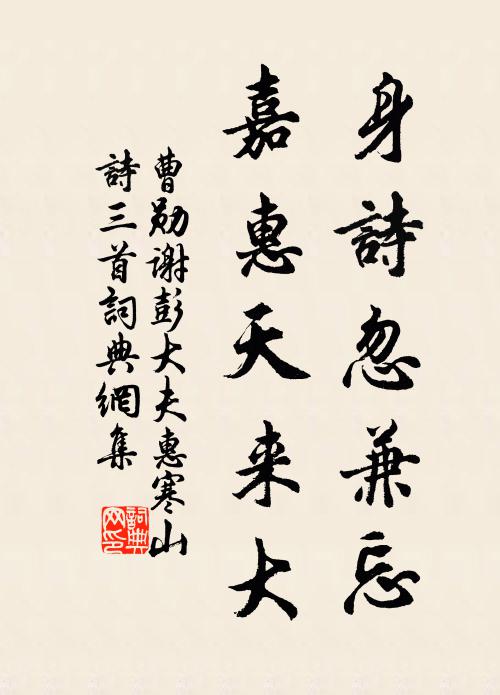 身詩忽兼忘
嘉惠天来大
曹勛谢彭大夫惠寒山
詩三首詞典網集
詞典网印